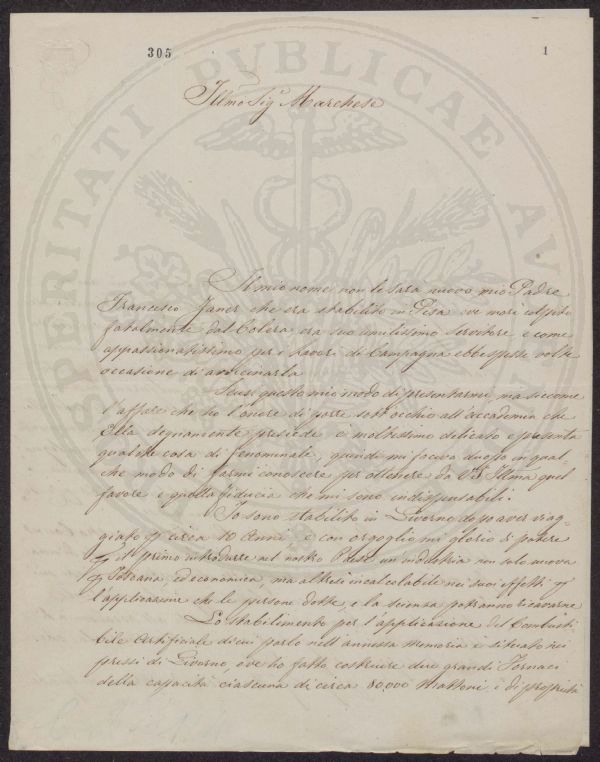 305
1
Illmo Sig.r Marchese
Il mio nome non le sarà nuovo mio Padre
Francesco Janer che era stabilito in Pisa ove morì colpito
fatalmente dal Colera era suo umilissimo servitore e come
appassionatissimo per i lavori di Campagna ebbe spesse volte
occasione di avvicinarla
Scusi questo mio modo di presentarmi, ma siccome
l'affare che ho l'onore di porre sott'occhio all'accademia che
Ella degnamente presiede è moltissimo delicato e presenta
qualche cosa di fenominale, quindi mi faceva duopo in qual=
che modo di farmi conoscere per ottenere da V.S. Illma quel
favore e quella fiducia che mi sono indispensabili.
Io sono stabilito in Livorno dopo aver viag=
giato p circa 10 Anni, e con orgoglio mi glorio di potere
p il primo introdurre nel nostro Paese un industria non solo nuova
p Toscana, ed economica, ma altresì incalcolabile nei suoi effetti p
l'applicazione che le persone dotte, e la scienza potranno ricavarne
Lo stabilimento per l'applicazione del Combusti
bile Artificiale di cui parlo nell'annessa memoria è situato nei
pressi di Livorno, ove ho fatto costruire due grandi Fornaci
della capacità ciascuna di circa 80,000 Mattoni è di proprietà
SPERITATI PVBLICAE AV